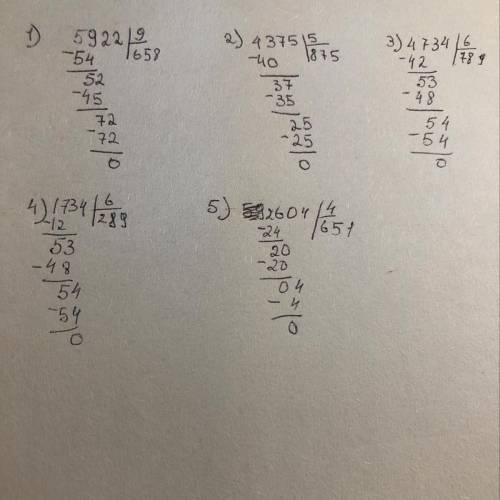 1) 5922 | 9
-54 | 658
52
-45
72
-72
0
2) 4375 | 5
-40 | 875
37
-35
25
-25
0
3) 4734 | 6
-42 | 789
53
-48
54
-54
0
4) 1734 | 6
-12 | 289
53
-48
54
-54
0
5) 2604 | 4
-24 | 651
20
-20
04
-4
0